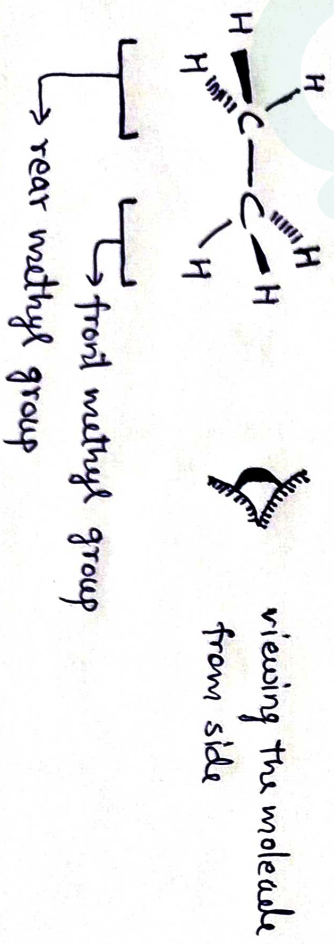 H
H
H
C — C
H
H
H
viewing the molecule
from side
front methyl group
rear methyl group